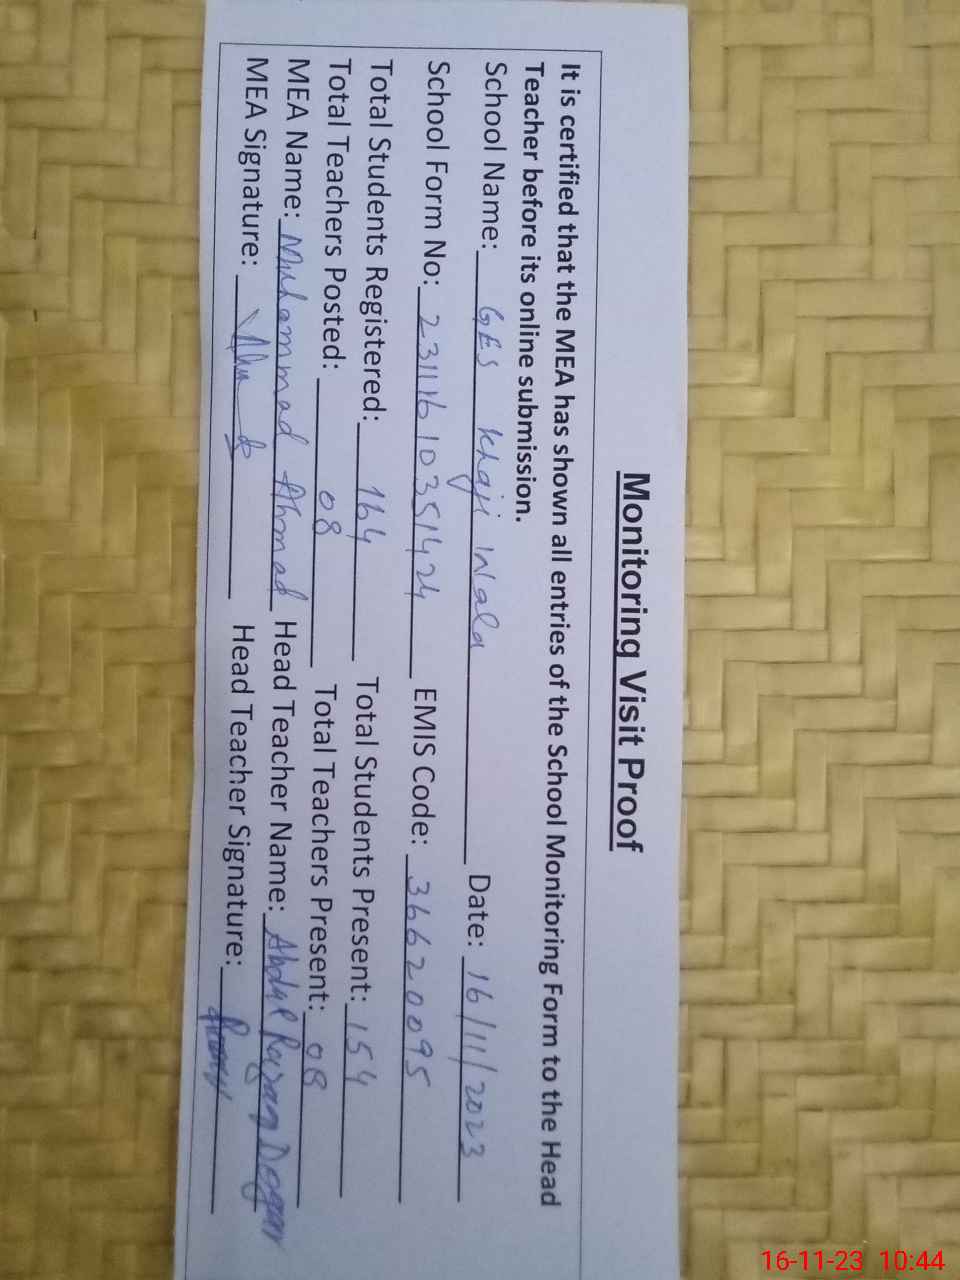 Monitoring Visit Proof
It is certified that the MEA has shown all entries of the School Monitoring Form to the Head
Teacher before its online submission.
School Name: GES Khaji Wala Date: 16/11/2023
School Form No: 231116 10351424 EMIS Code: 36620095
Total Students Registered: 164 Total Students Present: 154
Total Teachers Posted: 08 Total Teachers Present: 08
MEA Name: Muhammad Ahmad Head Teacher Name: Abdul
MEA Signature: Head Teacher Signature:
16-11-23 10:44